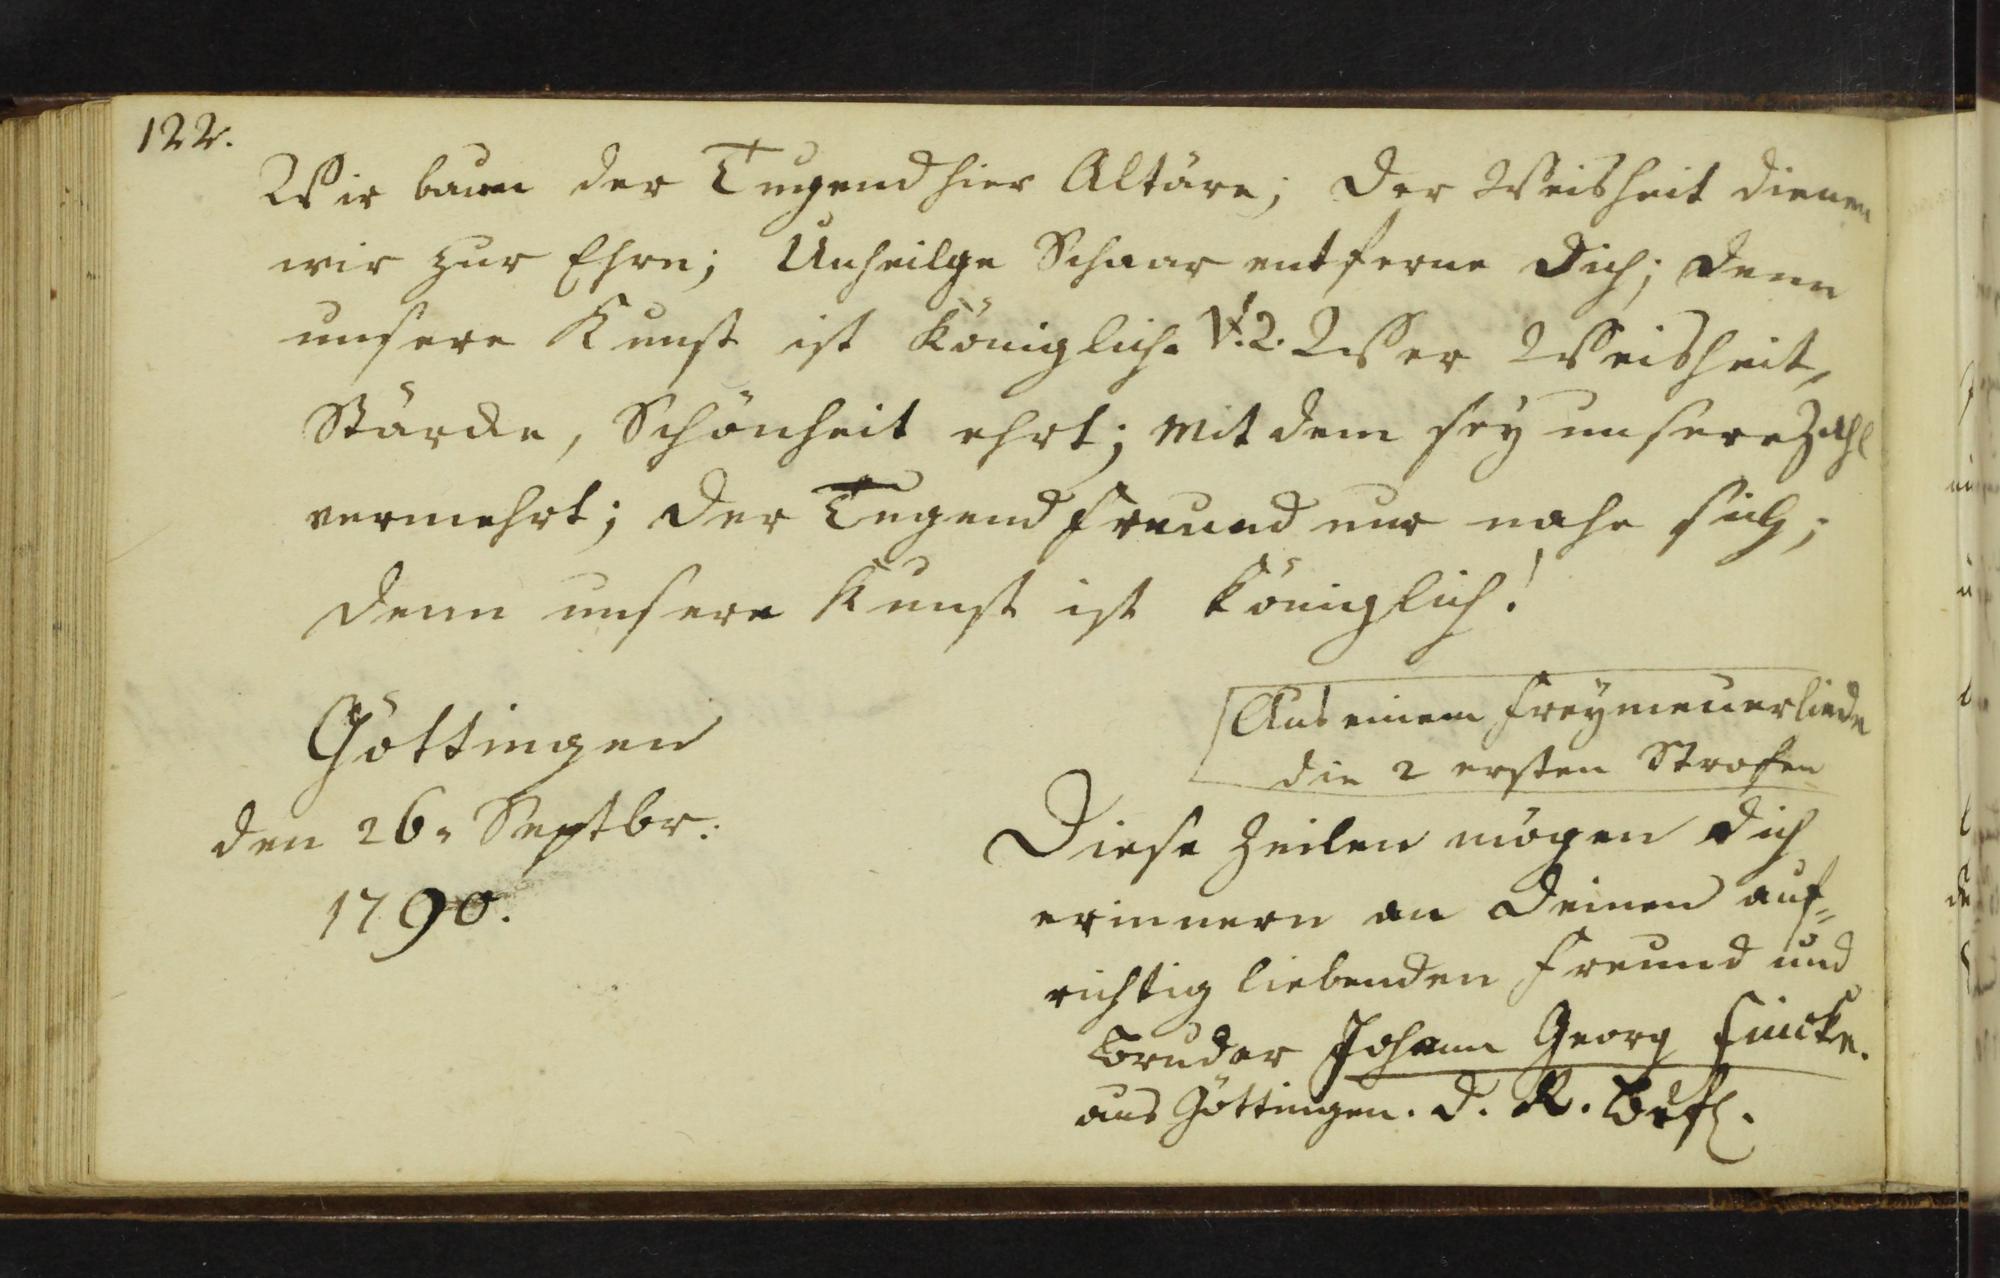 122.
Wir bauen der Tugend hier Altäre; Der Weisheit dienen
wir zur Ehre; Unheilge Schaar entferne Dich; denn
unsere Kunst ist Königlich. V. 2. Wer Weisheit,
Stärcke, Schönheit ehrt; mit dem sey unsere Zahl
vermehrt; Der Tugend Freund nur nahe sich;
denn unsere Kunst ist Königlich!
Aus einem Freymeuerliede
die 2 ersten Strofen
Göttingen
den 26. Septbr:
1790.
Diese Zeilen mögen dich
erinnern an Deinen auf=
richtig liebenden Freund und
Bruder Johann Georg Fincke.
aus Göttingen. d. R. Befl.